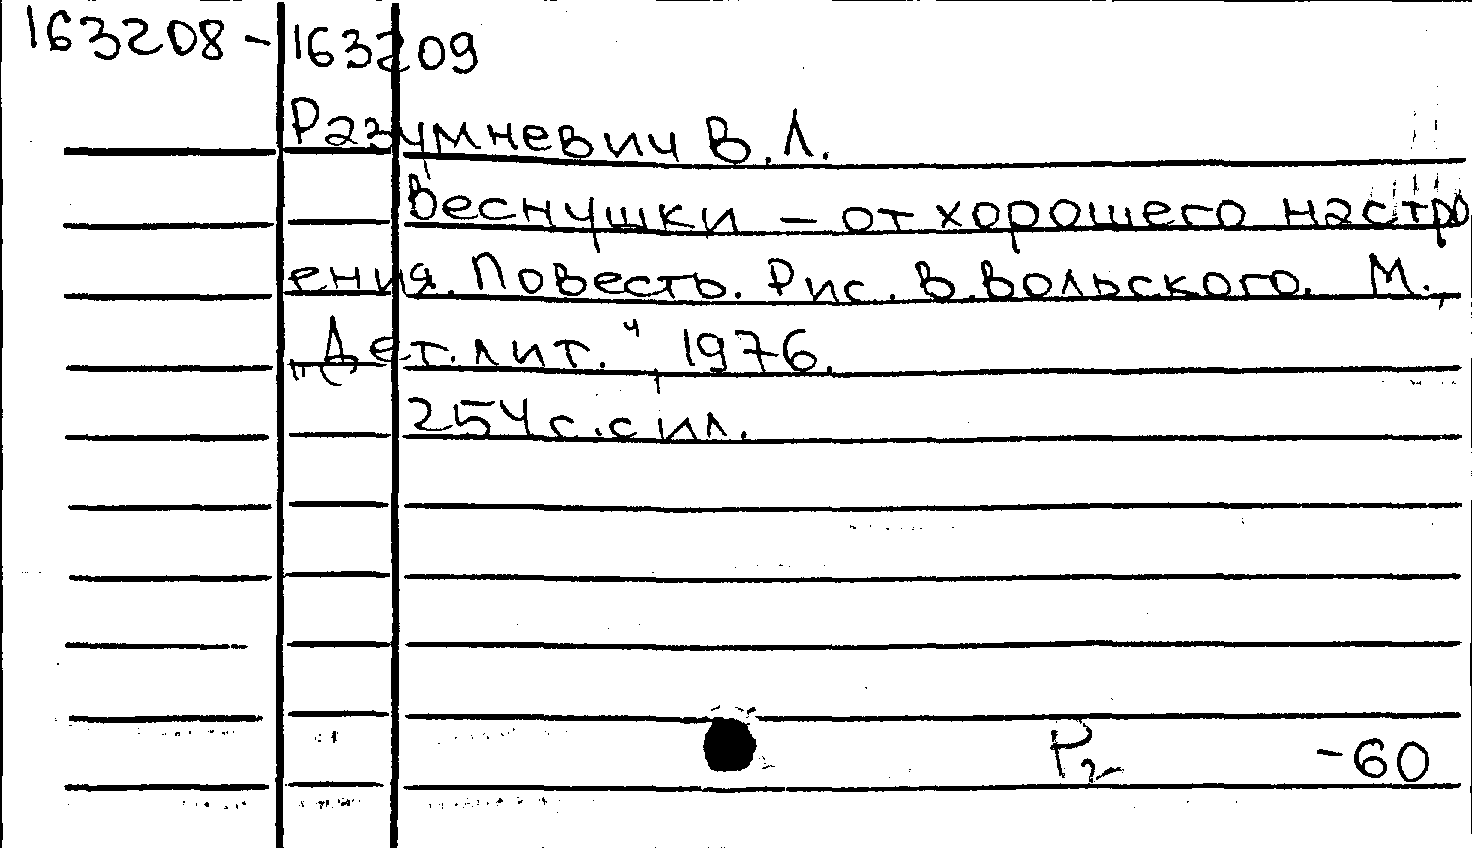 163208-163209
Разумневич В.Л.
Веснушки - от хорошего настро
ения. Повесть. Рис. В.Вольского. М.,
"Дет.лит.", 1976.
254 с.с ил.
Р2 -60